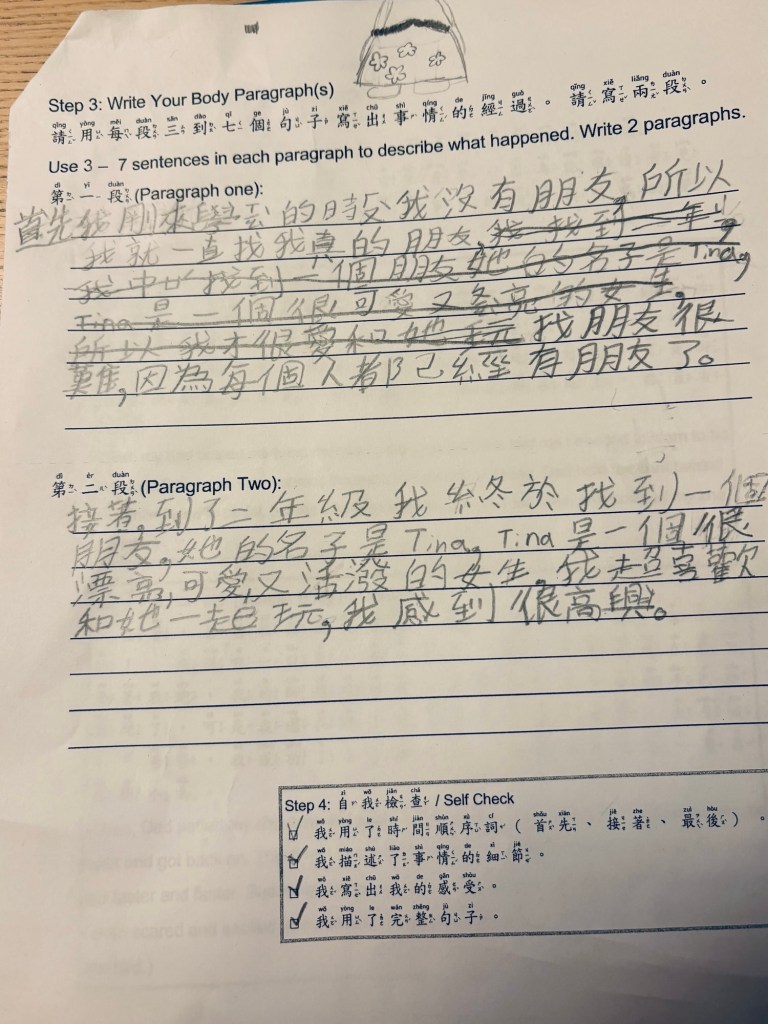 Step 3: Write Your Body Paragraph(s)
請用每段三到七個句子寫出事情的經過。請寫兩段。
Use 3 – 7 sentences in each paragraph to describe what happened. Write 2 paragraphs.
第一段 (Paragraph one):
首先我剛來學 的時 我沒有朋友,所以
我就一直找我真的朋友,我找到二年 ,
我 找到一個朋友她的名子是Tina,
Tina是一個很可愛又 亮的女生。
所以我才很愛和她玩 找朋友很
難,因為每個人都已經有朋友了。
第二段 (Paragraph Two):
接著,到了二年級我終於找到一個
朋友,她的名子是Tina。Tina是一個很
漂亮,可愛,又活潑的女生。我超喜歡
和她一起玩,我感到很高興。
Step 4: 自我檢查 / Self Check
我用了時間順序詞(首先、接著、最後)。
我描述了事情的細節。
我寫出我的感受。
我用了完整句子。